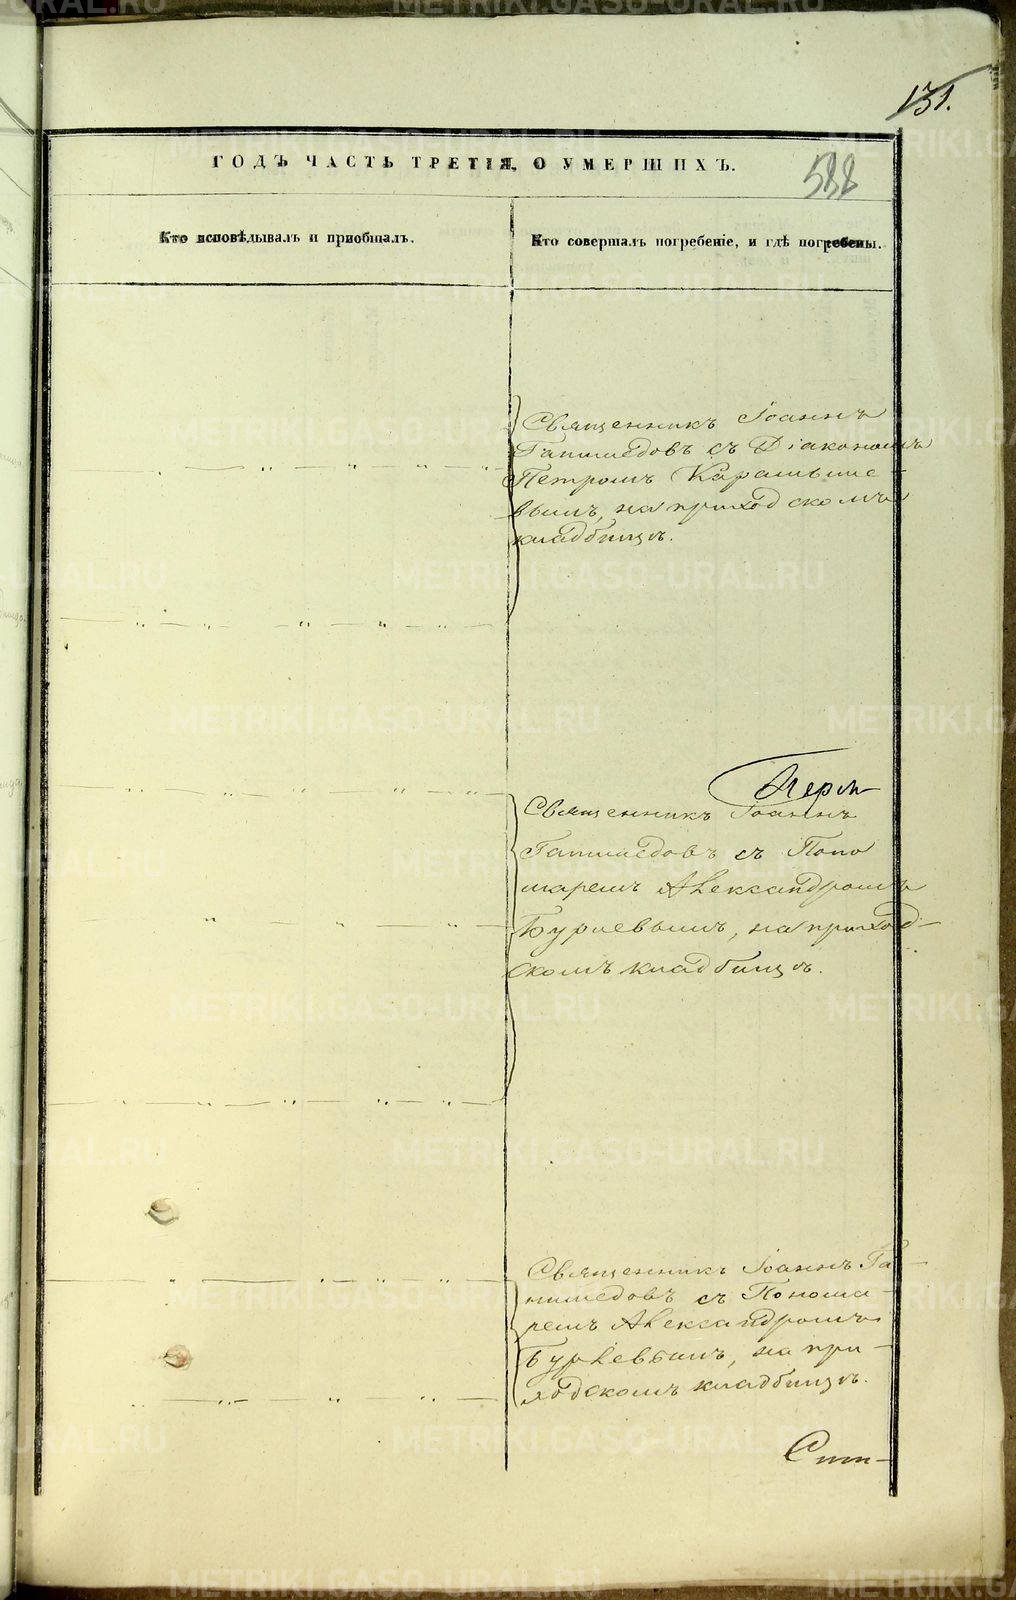 131.
588
ГОДЪ ЧАСТЬ ТРЕТІЯ, О УМЕРШИХЪ.
Кто исповѣдывалъ и пріобщалъ.
Кто совершалъ погребеніе, и гдѣ погребены.
Священникъ Іоаннъ
Ганимедовъ съ Діакономъ
Петромъ Карамыше-
вымъ, на приходскомъ
кладбищѣ.
Священникъ Іоаннъ
Ганимедовъ съ Поно
маремъ Александромъ
Бурлевымъ, на приход-
скомъ кладбищѣ.
Священникъ Іоаннъ Га-
нимедовъ съ Понома-
ремъ Александромъ
Бурлевымъ, на при-
ходскомъ кладбищѣ.
METRIKI.GASO-URAL.RU